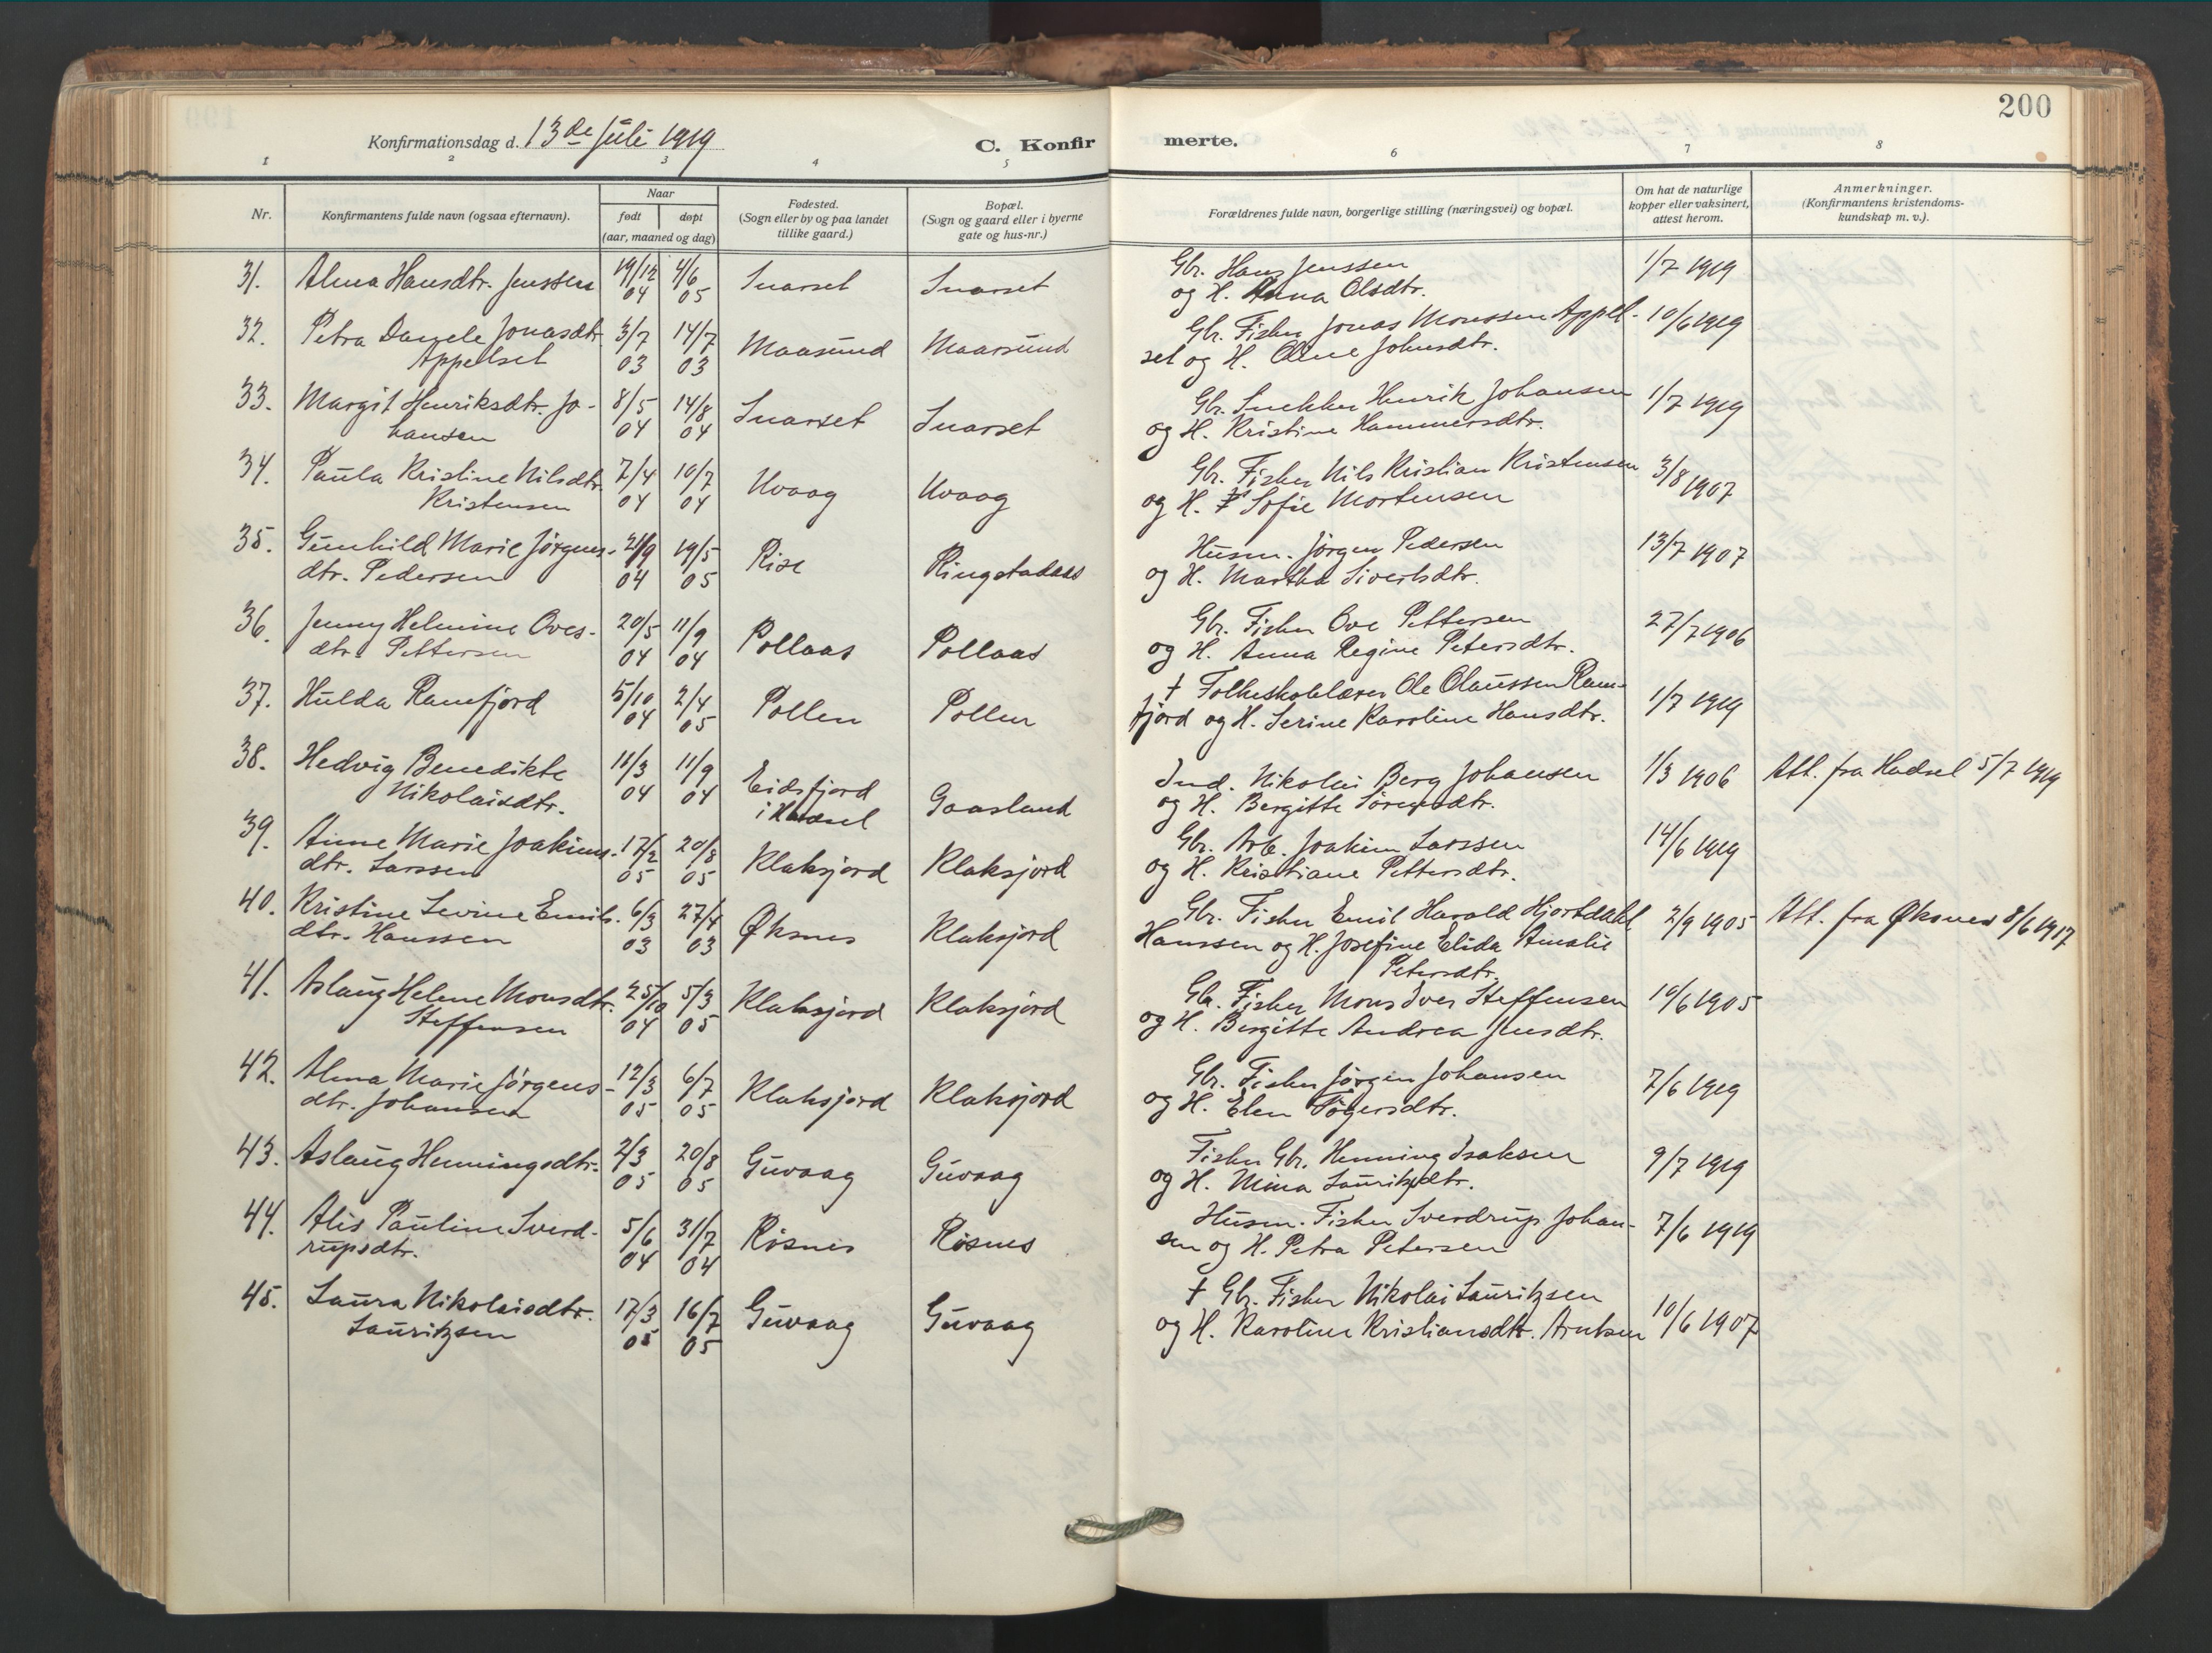 200
Konfirmationsdag d. 13de Juli 1919
C. Konfirmerte.
1 2 3 4 5 6 7 8
Nr.
Konfirmantens fulde navn (ogsaa efternavn).
Naar
født døpt
(aar, maaned og dag)
Fødested.
(Sogn eller by og paa landet
tillike gaard.)
Bopæl.
(Sogn og gaard eller i byerne
gate og hus-nr.)
Forældrenes fulde navn, borgerlige stilling (næringsvei) og bopæl.
Om hat de naturlige
kopper eller vaksinert,
attest herom.
Anmerkninger.
(Konfirmantens kristendoms-
kundskap m. v.).
31. Alma Hansdtr. Jenssen 19/12 04 4/6 05 Snarset Snarset Gbr. Hans Jenssen 1/7 1919
og H. Anna Olsdtr.
32. Petra Jonasdtr. 3/7 14/7 Maasund Maarsund Gbr. Fisker Jonas Monssen Appel- 10/6 1919
Appelset 03 03 set og H. Oline Johnsdtr.
33. Margit Henriksdtr. Jo- 8/5 14/8 Snarset Snarset Gbr. Snekker Henrik Johansen 1/7 1919
hansen 04 04 og H. Kristine Hammersdtr.
34. Paula Kristine Nilsdtr. 7/4 10/7 Uvaag Uvaag Gbr. Fisker Nils Kristian Kristensen 3/8 1907
Kristensen 04 04 og H. Sofie Mortensen
35. Gunhild Marie Jørgens- 21/9 19/5 Rise Ringstadaas Husm. Jørgen Pedersen 13/7 1907
dtr. Pedersen 04 05 og H. Martha Sivertsdtr.
36. Jenny Helmine Oves- 20/5 11/9 Pollaas Pollaas Gbr. Fisker Ove Pettersen 27/7 1906
dtr. Pettersen 04 04 og H. Anna Regine Petersdtr.
37. Hulda Ranefjord 5/10 2/4 Pollen Pollen † Folkeskolelærer Ole Olaussen Rane- 1/7 1919
04 05 fjord og H. Serine Karoline Hansdtr.
38. Hedvig Benedikte 11/3 11/9 Eidsfjord Gaasland Ind. Nikolai Berg Johansen 1/3 1906 Att. fra Hadsel 5/7 1919
Nikolaisdtr. 04 04 i Hadsel og H. Bergitte Sørensdtr.
39. Anne Marie Joakims- 17/2 20/8 Klaksjord Klaksjord Gbr. Arb. Joakim Larssen 14/6 1919
dtr. Larssen 05 05 og H. Kristiane Pettersdtr.
40. Kristine Levine Emils- 6/3 27/4 Øksnes Klaksjord Gbr. Fisker Emil Harald Hjortdahl 2/9 1905 Att. fra Øksnes 8/6 1917
dtr. Hanssen 03 03 Hanssen og H. Josefine Elida Amalie
Petersdtr.
41. Aslaug Helene Monsdtr. 25/10 5/3 Klaksjord Klaksjord Gbr. Fisker Mons Iver Steffensen 10/6 1905
Steffensen 04 05 og H. Birgitte Andrea Jensdtr.
42. Alma Marie Jørgens- 12/3 6/7 Klaksjord Klaksjord Gbr. Fisker Jørgen Johansen 7/6 1919
dtr. Johansen 05 05 og H. Elen Tøgersdtr.
43. Aslaug Henningsdtr. 2/3 20/8 Guvaag Guvaag Fisker Gbr. Henning Isaksen 9/7 1919
05 05 og H. Mina Lauritzdtr.
44. Alis Pauline Sverd- 5/6 31/7 Risnes Risnes Husm. Fisker Sverdrup Johan- 7/6 1919
rupsdtr. 04 04 sen og H. Petra Petersen
45. Laura Nikolaisdtr. 17/3 16/7 Guvaag Guvaag † Gbr. Fisker Nikolai Lauritzsen 10/6 1907
Lauritzsen 05 05 og H. Karoline Kristiansdtr. Arntsen